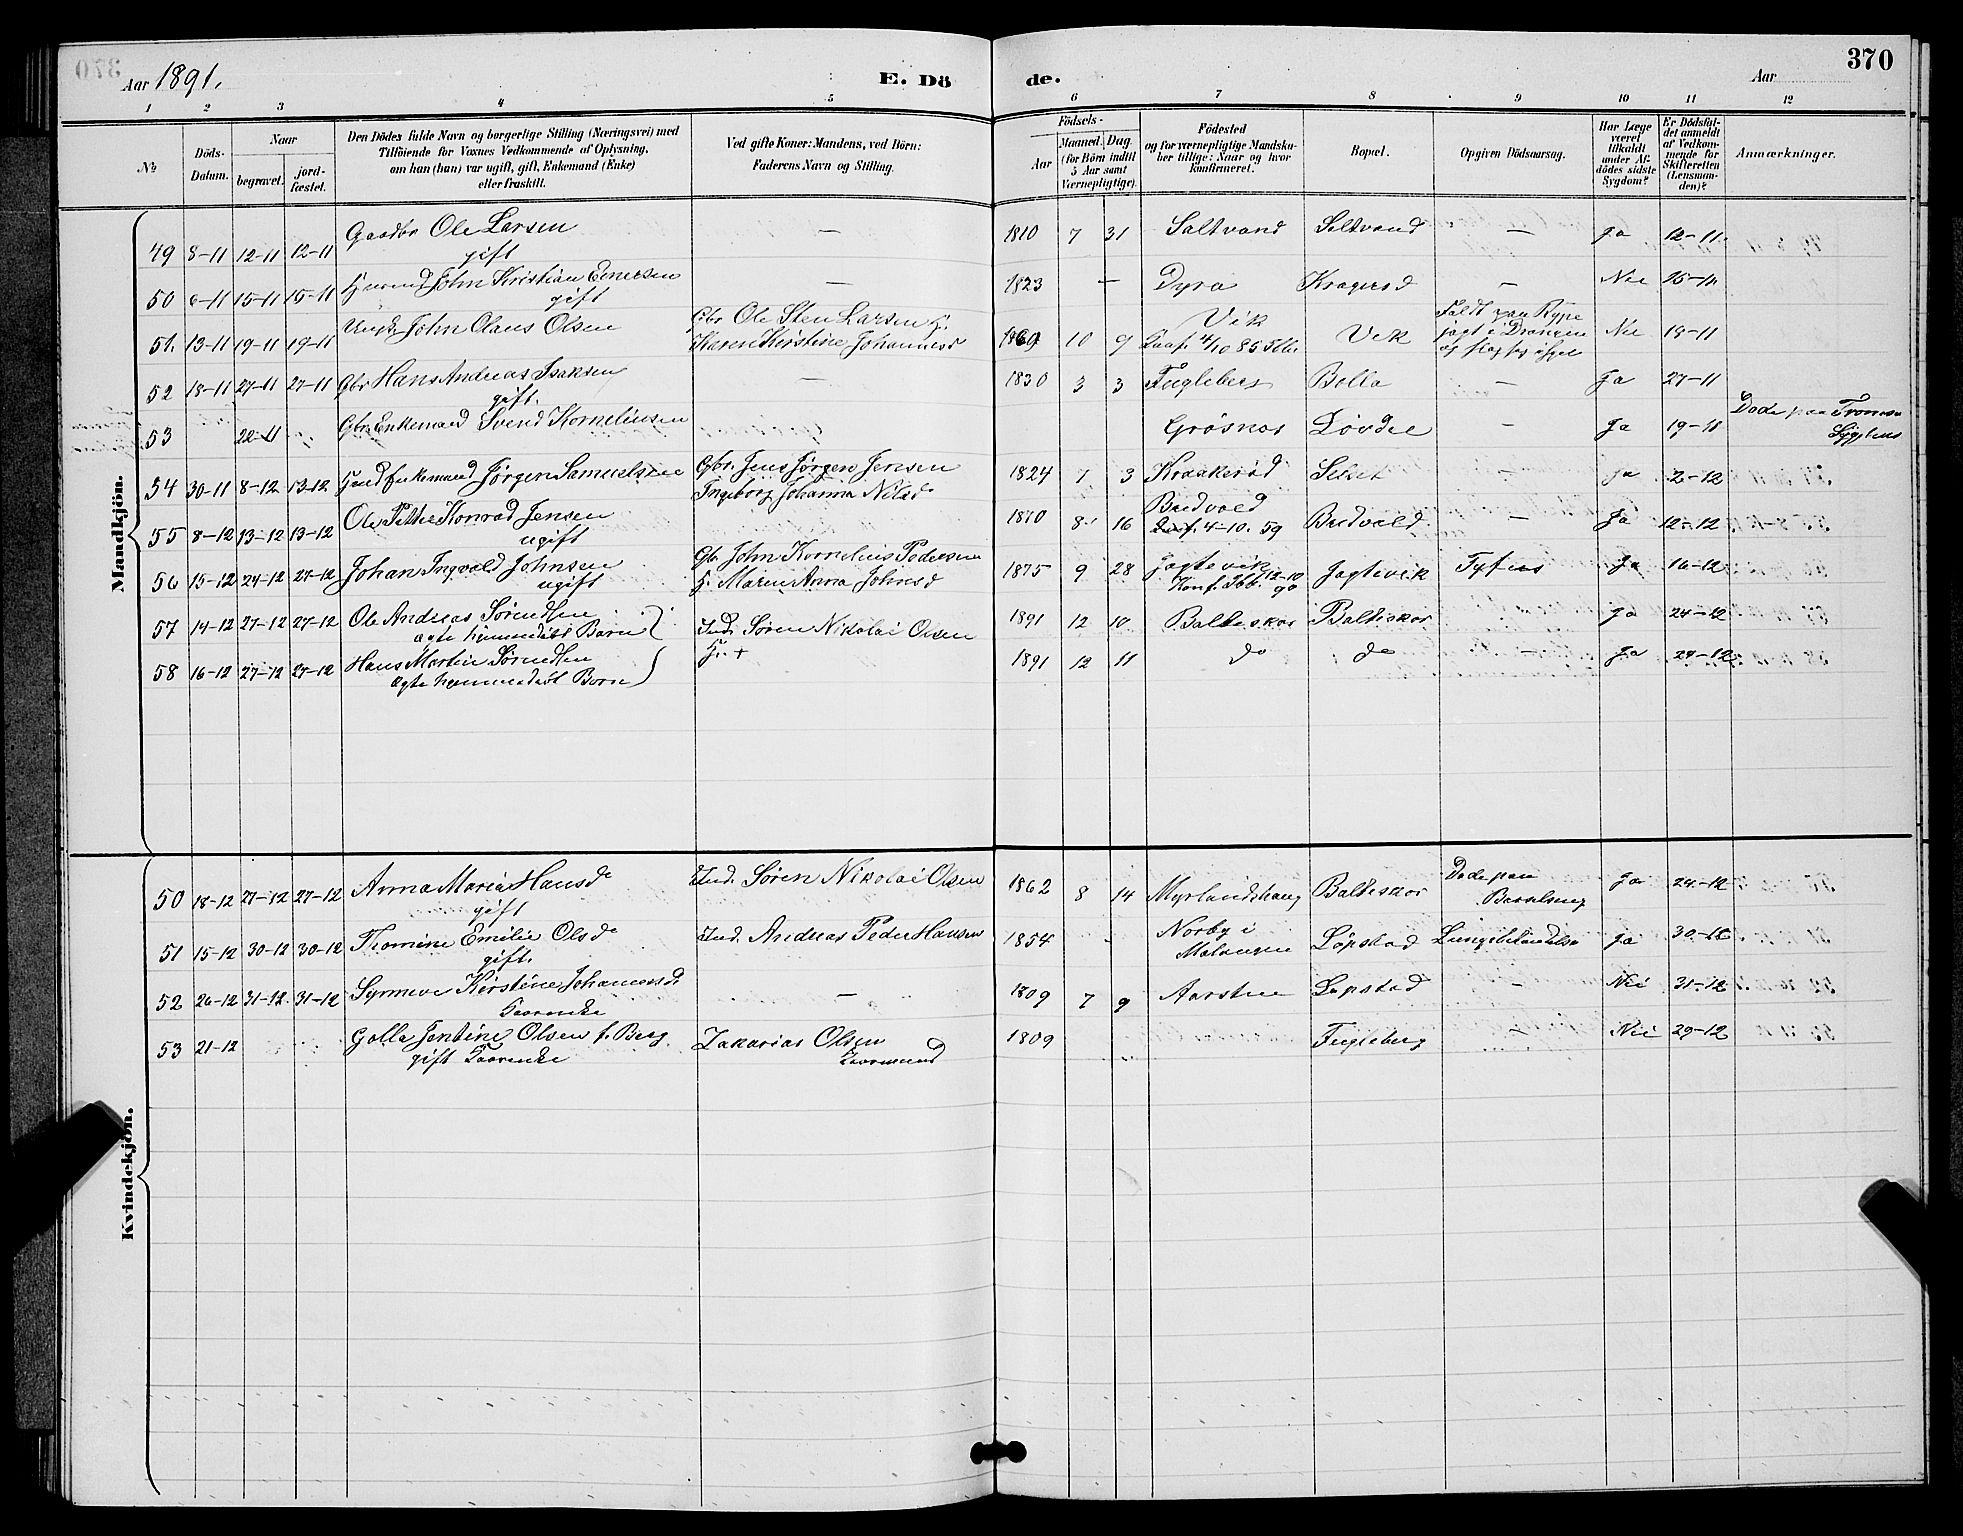 370
Aar 1891.
E. Dö
de.
Aar
1 2 3 4 5 6 7 8 9 10 11 12
No
Döds-Datum.
Naar
begravet.
jord-fæstet.
Den Dödes fulde Navn og borgerlige Stilling (Næringsvei) med
Tilföiende for Voxnes Vedkommende af Oplysning,
om han (hun) var ugift, gift, Enkemand (Enke)
eller fraskilt.
Ved gifte Koner: Mandens, ved Börn:
Faderens Navn og Stilling.
Födsels-
Aar
Maaned. Dag.
(for Börn indtil
5 Aar samt
Værnepligtige).
Födested
og for værnepligtige Mandska-
ber tillige: Naar og hvor
konfirmeret.
Bopæl.
Opgiven Dödsaarsag.
Har Læge
været
tilkaldt
under Af-
dödes sidste
Sygdom?
Er Dödsfal-
det anmeldt
af Vedkom-
mende for
Skifteretten
(Lensman-
den)?
Anmærkninger.
Mandkjön.
49 8-11 12-11 12-11 Gaardbr Ole Larsen gift — 1810 7 31 Saltvand Saltvand — Ja 12-11
50 6-11 15-11 15-11 John Kristian Enersen gift — 1823 — Dyrø Kragerød — Nei 15-11
51. 13-11 19-11 19-11 Ungk. John Olaus Olsen Gbr Ole Sten Larsen H. Karen Kirstine Johannesd 10 9 Vik 4/10 85 Vik Faldt paa Rype jagt i Drangen Nei 18-11
52 18-11 27-11 27-11 Gbr Hans Andreas Isaksen gift. — 1830 3 3 Fugleberg Bolla — Ja 27-11
53 22-11 Gbr. Enkemand Svend Kornelinsen Grøsnes Løvdal — Ja 19-11 Døde paa Tromsø Sygehus
54 30-11 8-12 13-12 Enkemand Jørgen Samuelsen Gbr. Jens Jørgen Jensen Ingeborg Johanna Nilsd 1824 7 3 Kraakerød Selset — Ja 2-12
55 8-12 13-12 13-12 Ole Petter Konrad Jensen ugift 1870 8 16 Bredvold 4-10.59 Bredvold — Ja 12-12
56 15-12 24-12 27-12 Johan Ingvald Johnsen ugift Gbr John Kornelius Pedersen H. Maren Anna Johnsd 1875 9 28 Jagtevik Konf. Ibb. 12-10 90 Jagtevik Tyfus Ja 16-12
57 14-12 27-12 27-12 Ole Andreas Sørensen ægte hjemmedøbt Barn Ind. Søren Nikolai Olsen H. + 1891 12 10 Balteskar Balteskar Ja 24-12
58 16-12 27-12 27-12 Hans Martin Sørensen ægte hjemmedøbt Barn 1891 12 11 do do — Ja 24-12
Kvindekjön.
50 18-12 27-12 27-12 Anna Maria Hansd gift Ind. Søren Nikolai Olsen 1862 8 14 Myrlandshaug Balteskar Døde paa Barselseng Ja 24-12
51 15-12 30-12 30-12 Thomine Emilie Olsd gift. Ind. Andreas Peder Hansen 1854 Norby i Malangen Løpstad Lungebetændelse Ja 30-12
52 26-12 31-12 31-12 Synneve Kirstine Johannesd — 1809 7 9 Aarsten Løpstad — Nei 31-12
53 21-12 Golla Jentine Olsen f. Berg gift Zakarias Olsen 1809 Fugleberg — Nei 29-12